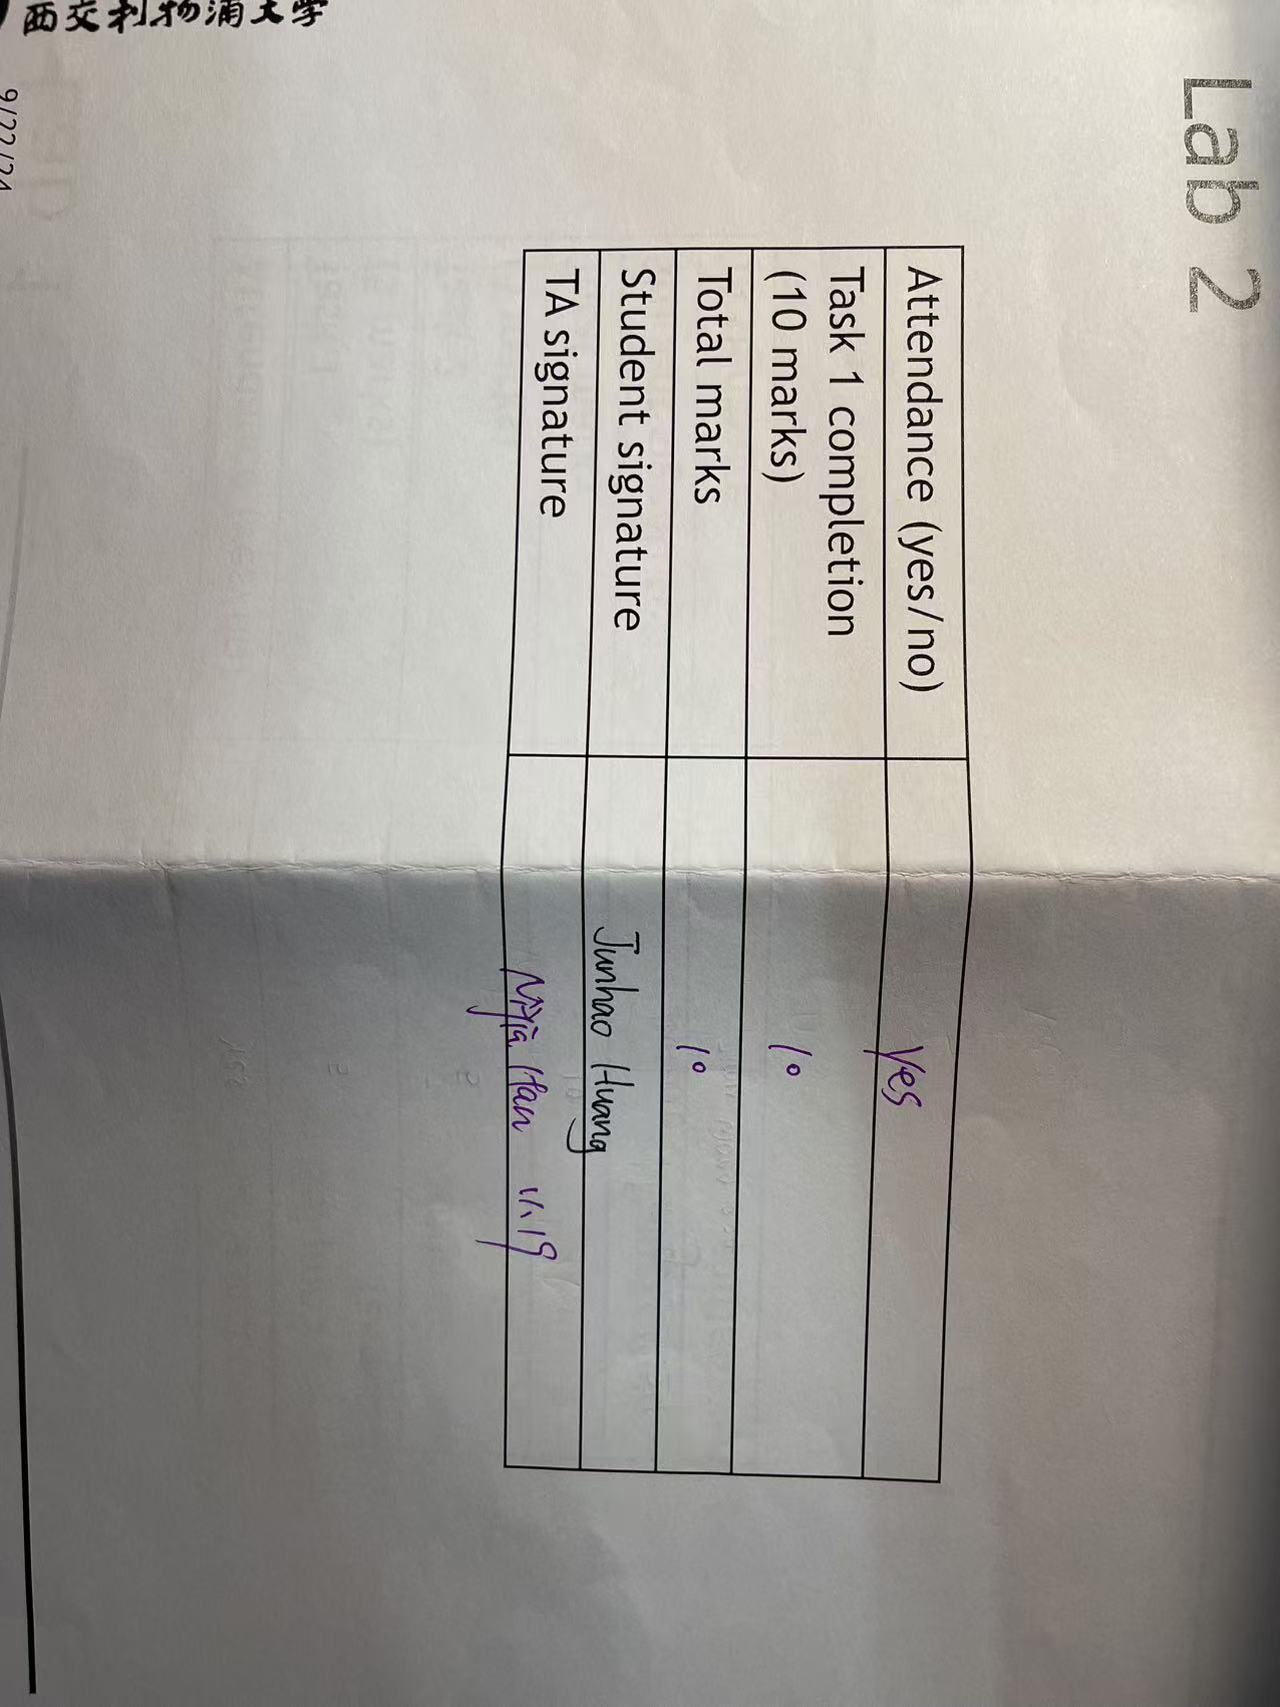 Lab 2
Attendance (yes/no) yes
Task 1 completion
(10 marks) 10
Total marks 10
Student signature Junhao Huang
TA signature Han 11.19
西交利物浦大学
9/22/24